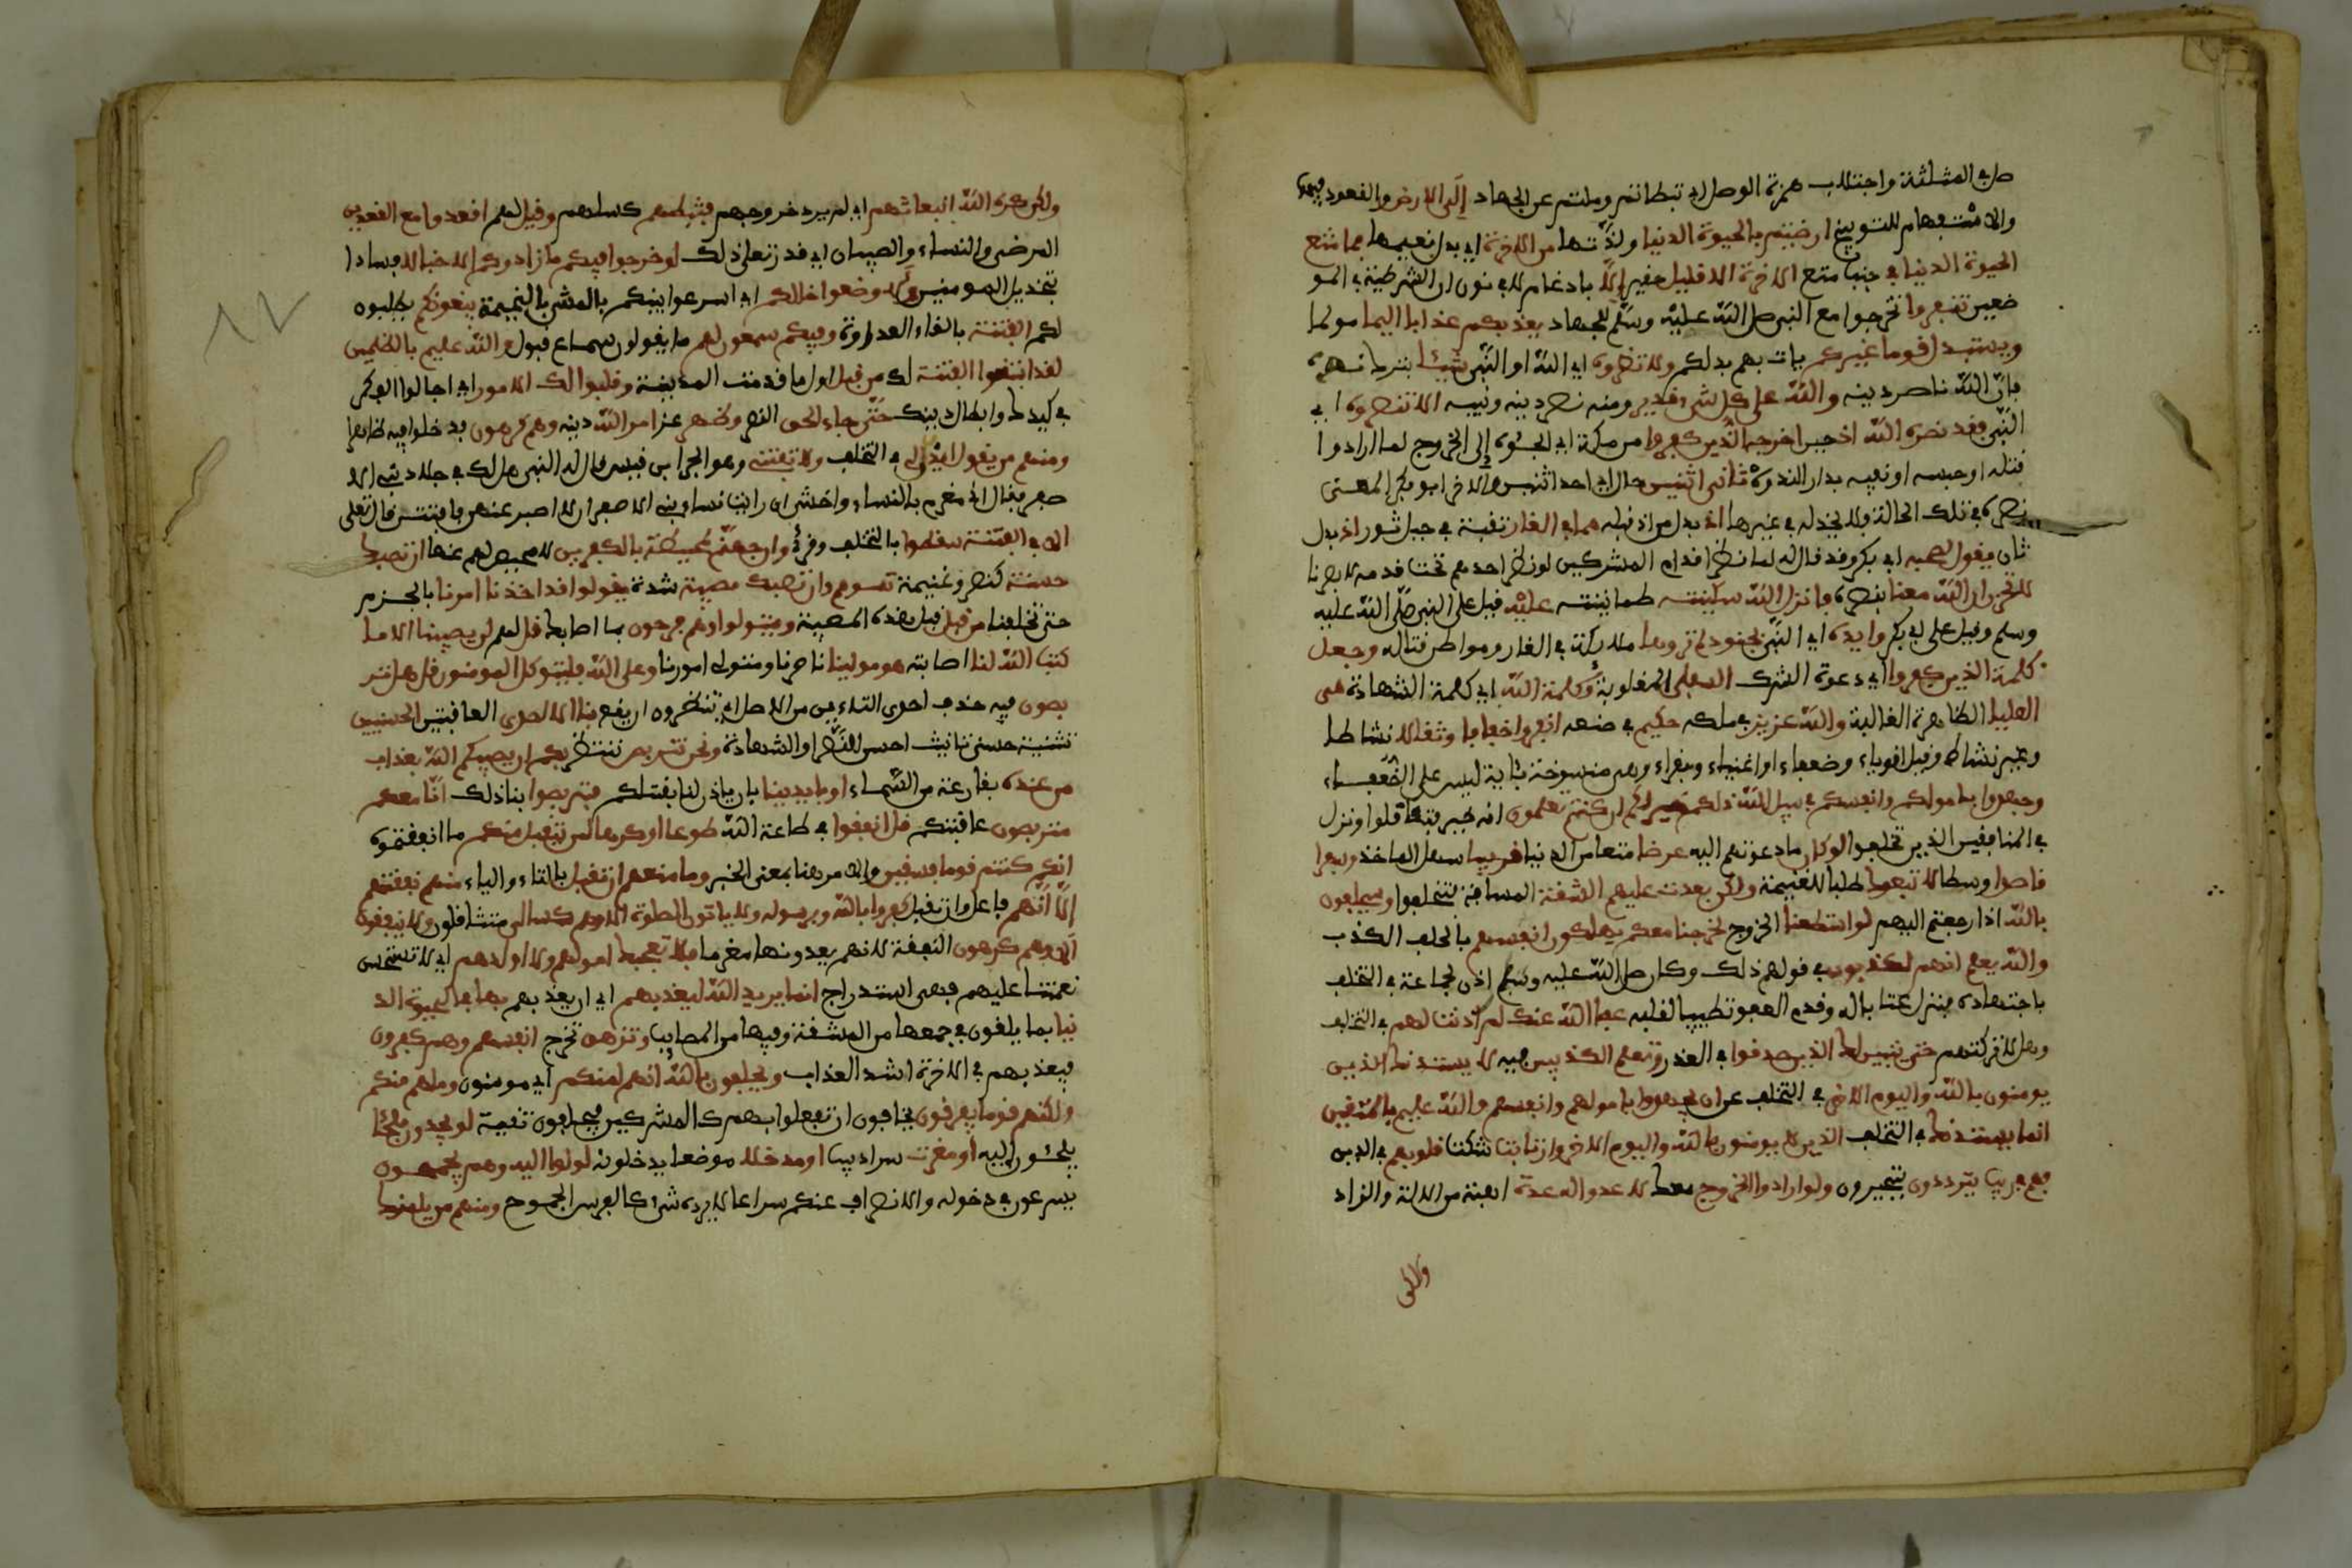 صل في المثلثة واجتلاب همزة الوصل اي تبطاتم وملتم عن الجهاد إلى الارض والقعود فيها
والاستفهام للتوبيخ ارضيتم بالحيوة الدنيا ولذتها من الاخرة اي بدل نعيمها فما متع
الحيوة الدنيا في جنب متع الاخرة الا قليل حقير إلا بادغام لا في نون ان الشرطية في المو
ضعين تنفروا تخرجوا مع النبي صلى الله عليه وسلم للجهاد يعذبكم عذابا اليما مولما
ويستبدل قوما غيركم يات بهم بدلكم ولا تضروه اي الله او النبي شيئا بترك نصره
فان الله ناصر دينه والله على كل شيء قدير ومنه نصر دينه ونبيه الا تنصروه اي
النبي فقد نصره الله اذ حين اخرجه الذين كفروا من مكة اي الجئوه إلى الخروج لما ارادوا
قتله او حبسه او نفيه بدار الندوة ثاني اثنين حال اي احد اثنين والاخر ابو بكر المعنى
نصره في تلك الحالة فلا يخذله في غيرها اذ بدل من اذ قبله هما في الغار نقب في جبل ثور اذ بدل
ثان يقول لصحبه ابي بكر وقد قال له لما نظر اقدام المشركين لو نظر احدهم تحت قدميه لابصرنا
لا تحزن ان الله معنا بنصره فانزل الله سكينته طمانينته عليه قيل على النبي صلى الله عليه
وسلم وقيل على ابي بكر وايده اي النبي بجنود لم تروها ملائكة في الغار ومواطن قتاله وجعل
كلمة الذين كفروا اي دعوة الشرك السفلى المغلوبة وكلمة الله اي كلمة الشهادة هي
العليا الظاهرة الغالبة والله عزيز في ملكه حكيم في صنعه انفروا خفافا وثقالا نشاطا
وغير نشاط وقيل اقوياء وضعفاء او اغنياء وفقراء وهي منسوخة باية ليس على الضعفاء
وجهدوا بامولكم وانفسكم في سبيل الله ذلكم خير لكم ان كنتم تعلمون انه خير فلا تثاقلوا ونزل
في المنافقين الذين تخلفوا لو كان ما دعوتهم اليه عرضا متعا من الدنيا قريبا سهل الماخذ وسفرا
قاصدا وسطا لاتبعوك طلبا للغنيمة ولكن بعدت عليهم الشقة المسافة فتخلفوا وسيحلفون
بالله اذا رجعتم اليهم لو استطعنا الخروج لخرجنا معكم يهلكون انفسهم بالحلف الكذب
والله يعلم انهم لكذبون في قولهم ذلك وكان صلى الله عليه وسلم اذن لجماعة في التخلف
باجتهاده فنزل عتابا له وقدم العفو تطييبا لقلبه عفا الله عنك لم اذنت لهم في التخلف
وهلا تركتهم حتى يتبين لك الذين صدقوا في العذر وتعلم الكذبين فيه لا يستذنك الذين
يومنون بالله واليوم الاخر في التخلف عن ان يجهدوا بامولهم وانفسهم والله عليم بالمتقين
انما يستذنك في التخلف الذين لا يومنون بالله واليوم الاخر وارتابت شكت قلوبهم في الدين
فهم في ريبهم يترددون يتحيرون ولو ارادوا الخروج معك لاعدوا له عدة اهبة من الالة والزاد
ولكن
ولكن كره الله انبعاثهم اي لم يرد خروجهم فثبطهم كسلهم وقيل لهم اقعدوا مع القعدين
المرضى والنساء والصبيان اي قدر تعلى ذلك لو خرجوا فيكم ما زادوكم الا خبالا فسادا
بتخذيل المومنين ولاوضعوا خللكم اي اسرعوا بينكم بالمشي بالنميمة يبغونكم يطلبون
لكم الفتنة بالقاء العداوة وفيكم سمعون لهم ما يقولون سماع قبول والله عليم بالظلمين
لقد ابتغوا الفتنة لك من قبل اول ما قدمت المدينة وقلبوا لك الامور اي اجالوا الفكر
في كيدك وابطال دينك حتى جاء الحق النصر وظهر عز امر الله دينه وهم كرهون فدخلوا فيه ظاهرا
ومنهم من يقول ايذن لي في التخلف ولا تفتني وهو الجد ابن قيس قال له النبي هل لك في جلاد بني الا
صفر فقال اني مغرم بالنساء واخشى ان رايت نساء بني الاصفر ان لا اصبر عنهن فافتتن قال تعلى
الا في الفتنة سقطوا بالتخلف وقرئ وان جهنم لمحيطة بالكفرين لا محيص لهم عنها ان تصبك
حسنة كنصر وغنيمة تسوهم وان تصبك مصيبة شدة يقولوا قد اخذنا امرنا بالحزم
حتى تخلفنا من قبل قبل هذه المصيبة ويتولوا وهم فرحون بما اصابك قل لهم لن يصيبنا الا ما
كتب الله لنا اصابته هو مولينا ناصرنا ومتولى امورنا وعلى الله فليتوكل المومنون قل هل تتر
بصون فيه حذف احدى التاءين من الاصل اي تنتظرون ان يقع بنا الا احدى العاقبتين الحسنيين
تثنية حسنى تانيث احسن النصر او الشهادة ونحن نتربص ننتظر بكم ان يصيبكم الله بعذاب
من عنده بقارعة من السماء او بايدينا بان ياذن لنا بقتلكم فتربصوا بنا ذلك انا معكم
متربصون عاقبتكم قل انفقوا في طاعة الله طوعا او كرها لن يتقبل منكم ما انفقتموه
انكم كنتم قوما فسقين والامر هنا بمعنى الخبر وما منعهم ان تقبل بالتاء والياء منهم نفقتهم
إلا أنهم فاعل وان تقبل كفروا بالله وبرسوله ولا ياتون الصلوة الا وهم كسالى متثاقلون ولا ينفقون
الا وهم كرهون النفقة لانهم يعدونها مغرما فلا تعجبك امولهم ولا اولدهم اي لا تستحسن
نعمتنا عليهم فهي استدراج انما يريد الله ليعذبهم اي ان يعذبهم بها في الحيوة الد
نيا بما يلقون في جمعها من المشقة وفيها من المصايب وتزهق تخرج انفسهم وهم كفرون
فيعذبهم في الاخرة اشد العذاب ويحلفون بالله انهم لمنكم اي مومنون وما هم منكم
ولكنهم قوم يفرقون يخافون ان تفعلوا بهم كالمشركين فيحلفون تقية لو يجدون ملجئا
يلجئون اليه او مغرت سراديب او مدخلا موضعا يدخلونه لولوا اليه وهم يجمحون
يسرعون في دخوله والانصراف عنكم سراعا لا يرده شيء كالفرس الجموح ومنهم من يلمزك